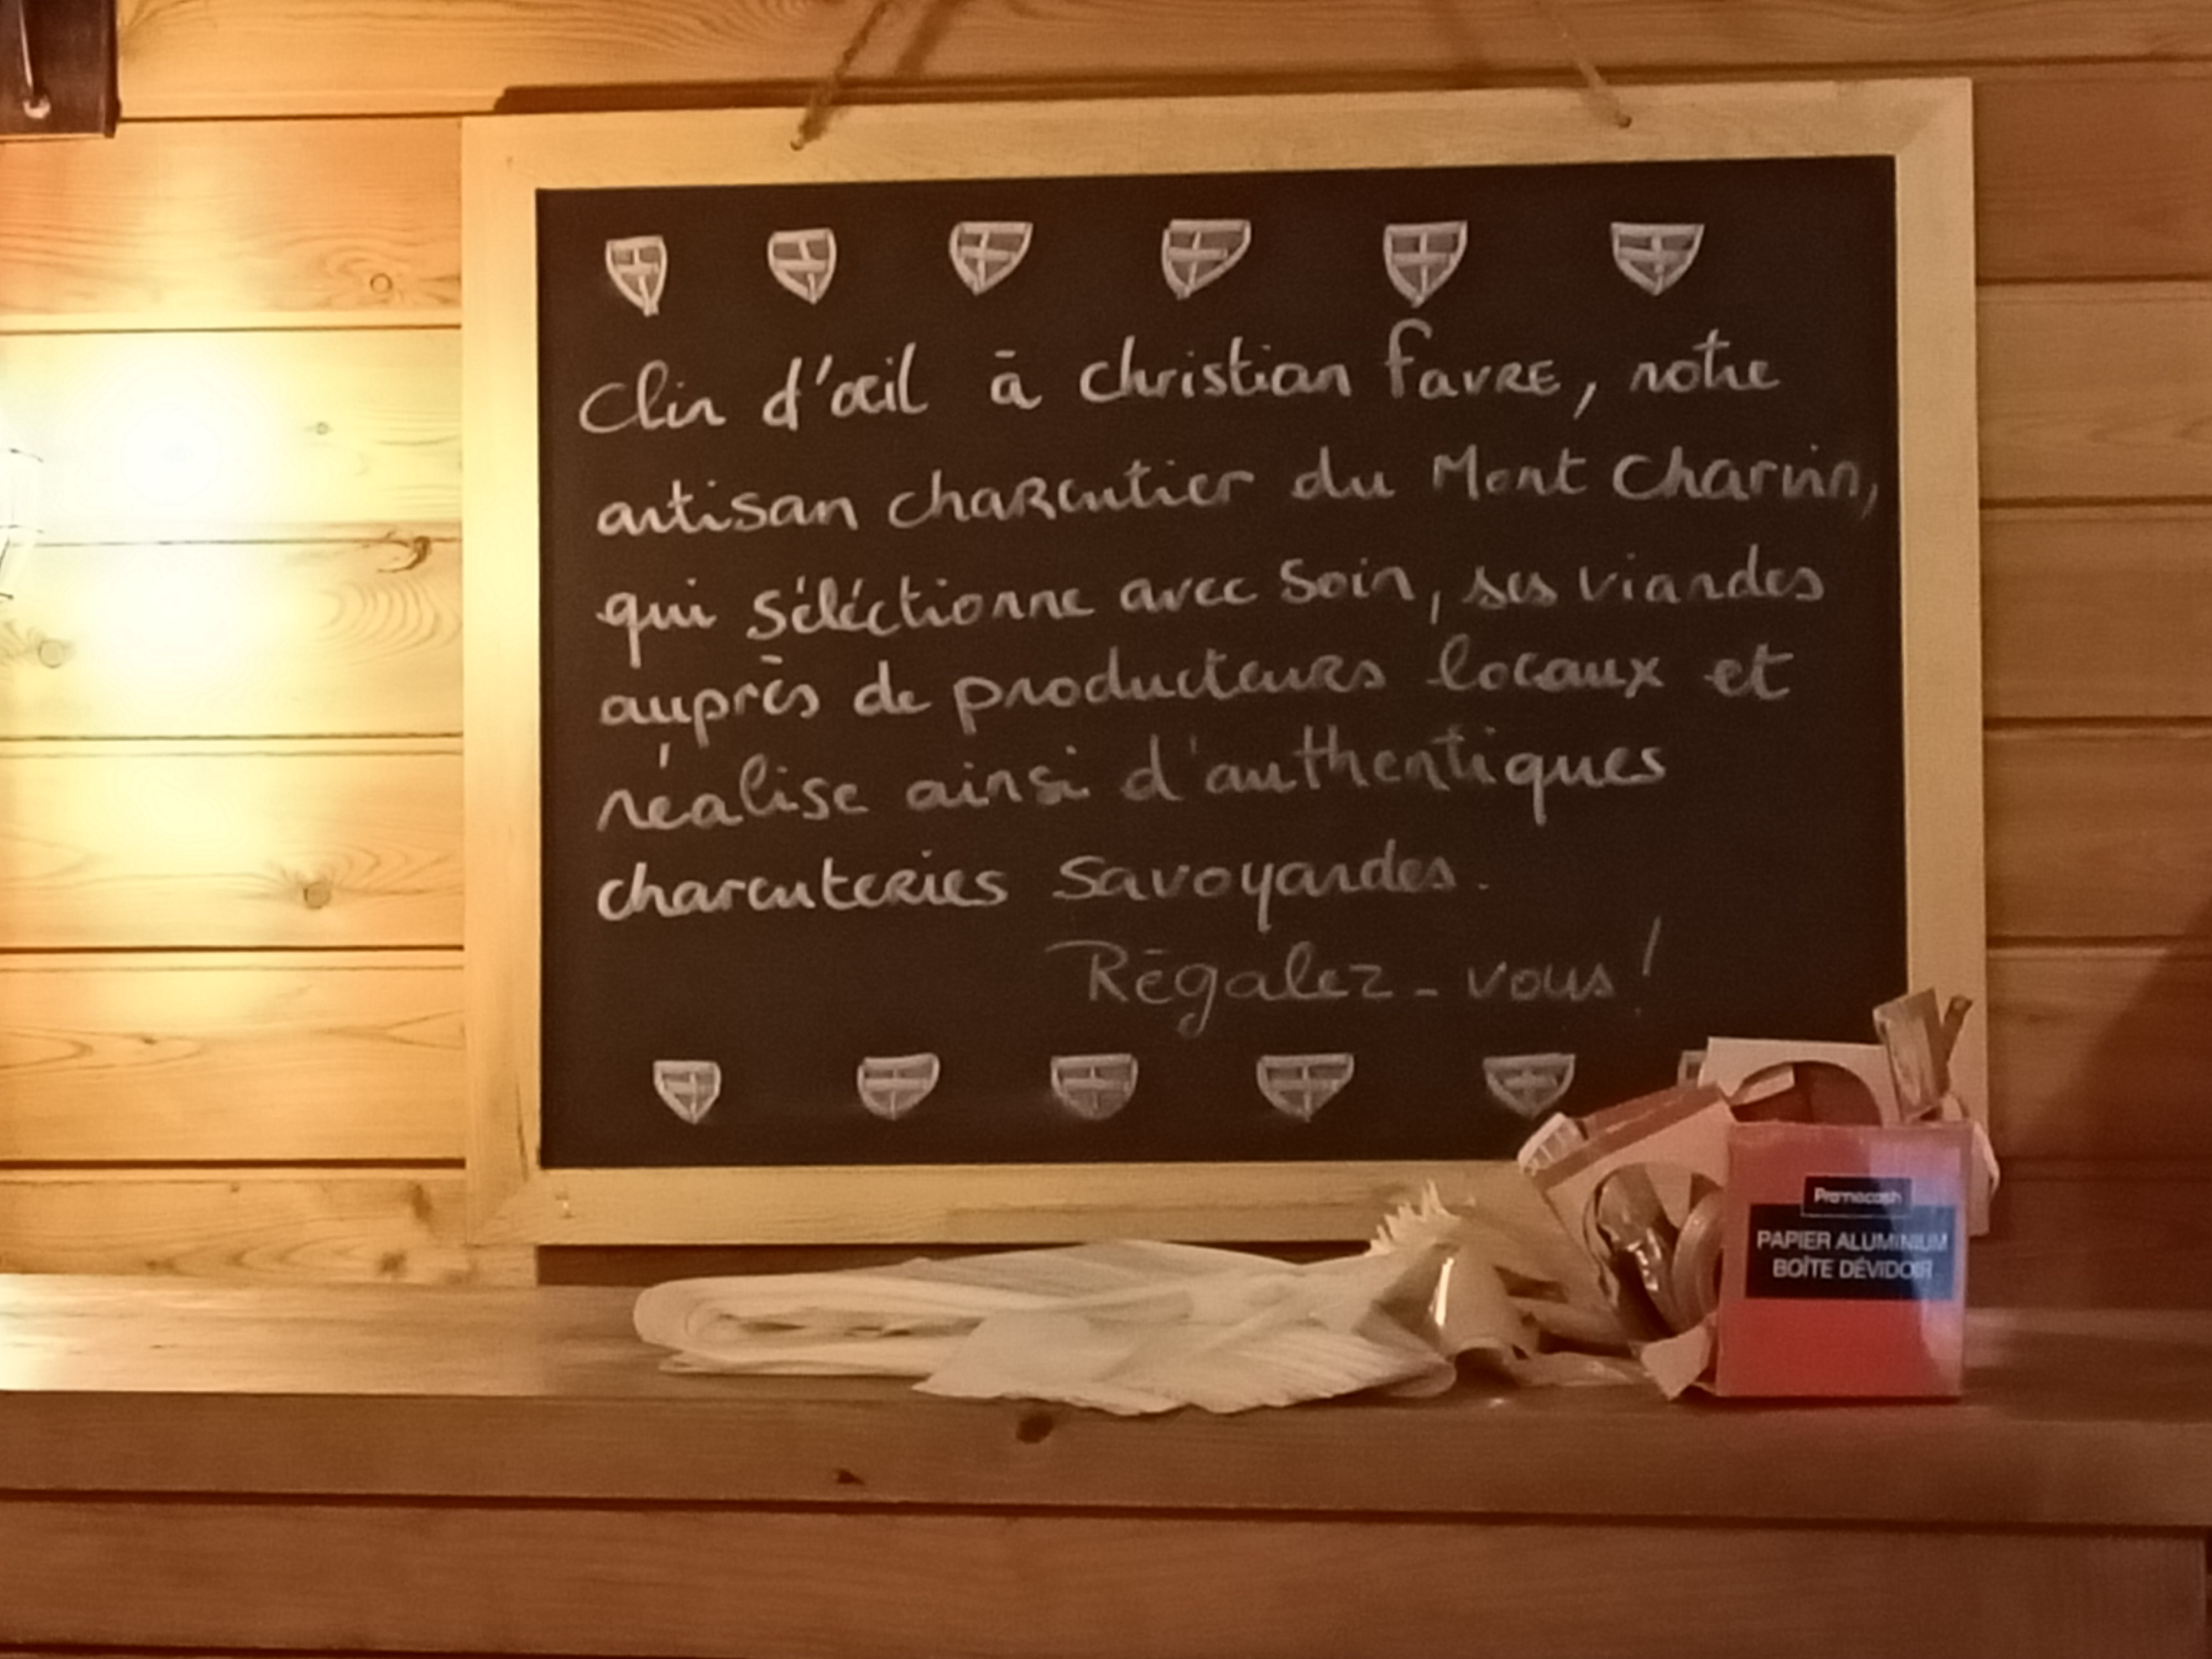 Clin d'œil à Christian Favre, notre
artisan charcutier du Mont Charvin,
qui séléctionne avec soin, ses viandes
auprès de producteurs locaux et
réalise ainsi d'authentiques
charcuteries Savoyardes.
Régalez-vous!
Promocash
PAPIER ALUMINIUM
BOÎTE DÉVIDOIR